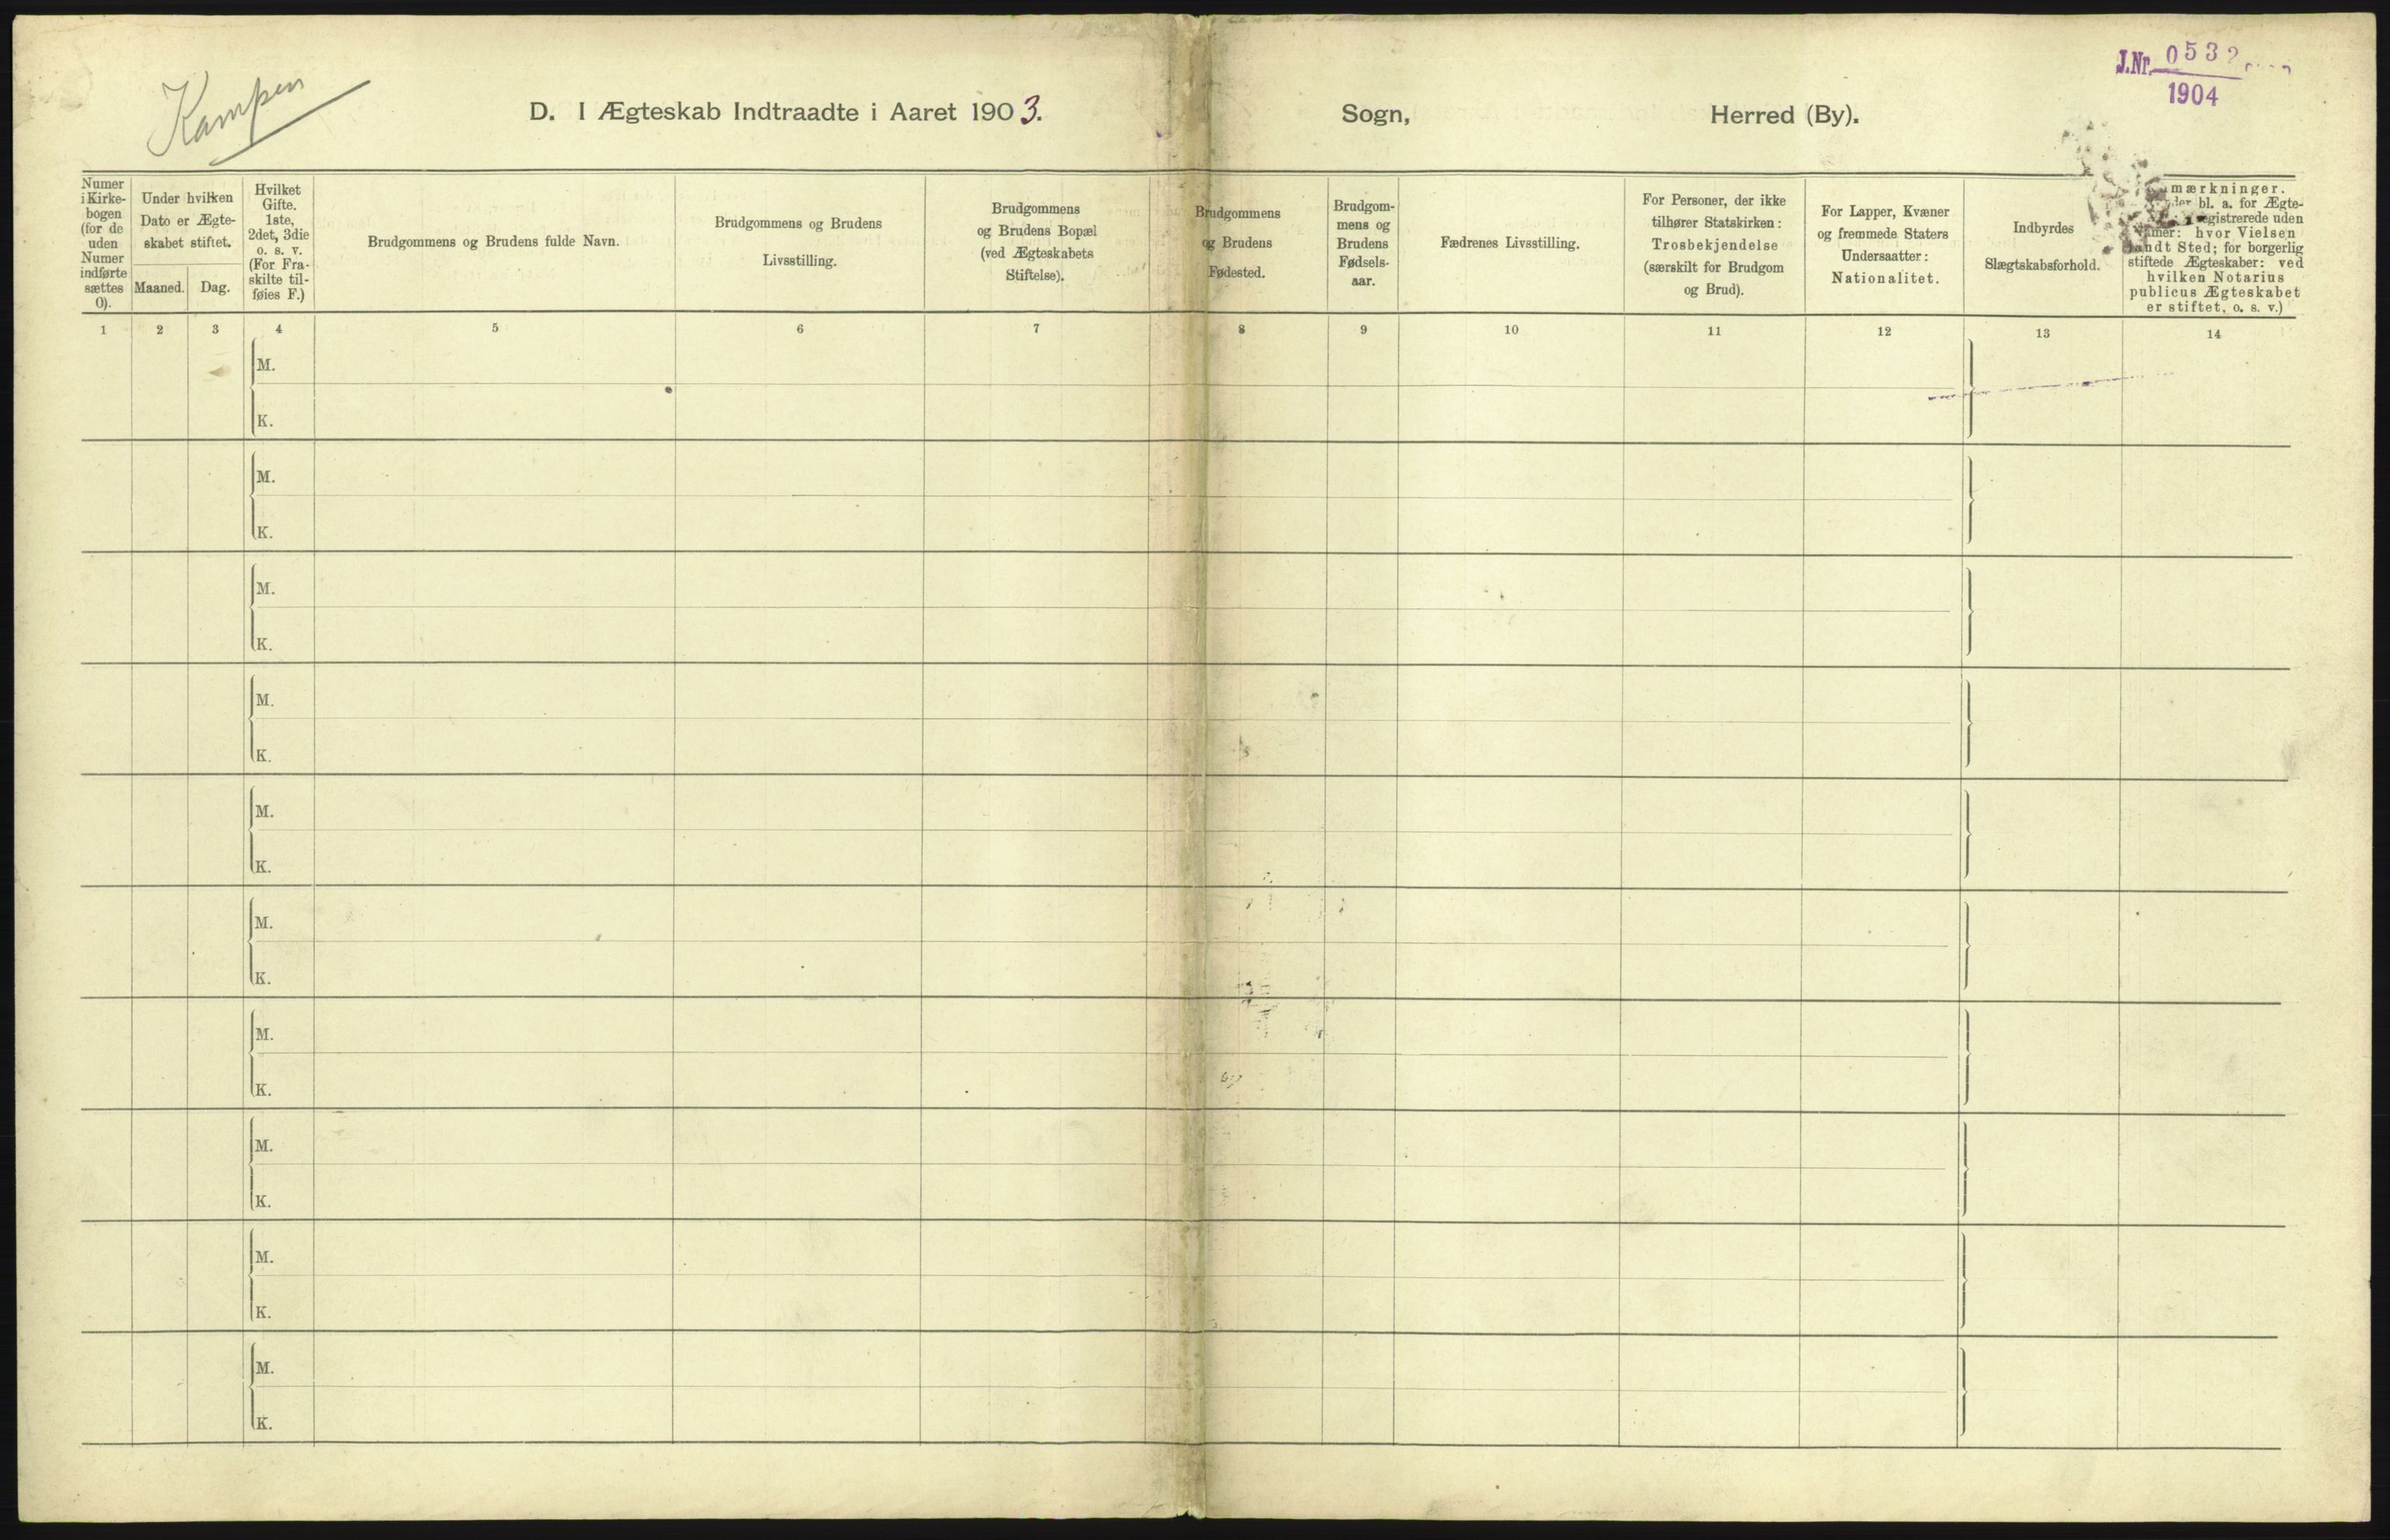 Kampen
D. I Ægteskab Indtraadte i Aaret 1903. Sogn, Herred (By).
J.Nr. 0532
1904
Numer
i Kirke-
bogen
(for de
uden
Numer
indførte
sættes
0).
Under hvilken
Dato er Ægte-
skabet stiftet.
Maaned. Dag.
Hvilket
Gifte.
1ste,
2det, 3die
o. s. v.
(For Fra-
skilte til-
føies F.)
Brudgommens og Brudens fulde Navn.
Brudgommens og Brudens
Livsstilling.
Brudgommens
og Brudens Bopæl
(ved Ægteskabets
Stiftelse).
Brudgommens
og Brudens
Fødested.
Brudgom-
mens og
Brudens
Fødsels-
aar.
Fædrenes Livsstilling.
For Personer, der ikke
tilhører Statskirken:
Trosbekjendelse
(særskilt for Brudgom
og Brud).
For Lapper, Kvæner
og fremmede Staters
Undersaatter:
Nationalitet.
Indbyrdes
Slægtskabsforhold.
mærkninger.
bl. a. for Ægte-
registrerede uden
hvor Vielsen
Sted; for borgerlig
stiftede Ægteskaber: ved
hvilken Notarius
publicus Ægteskabet
er stiftet, o. s. v.)
1 2 3 4 5 6 7 8 9 10 11 12 13 14
M.
K.
M.
K.
M.
K.
M.
K.
M.
K.
M.
K.
M.
K.
M.
K.
M.
K.
M.
K.